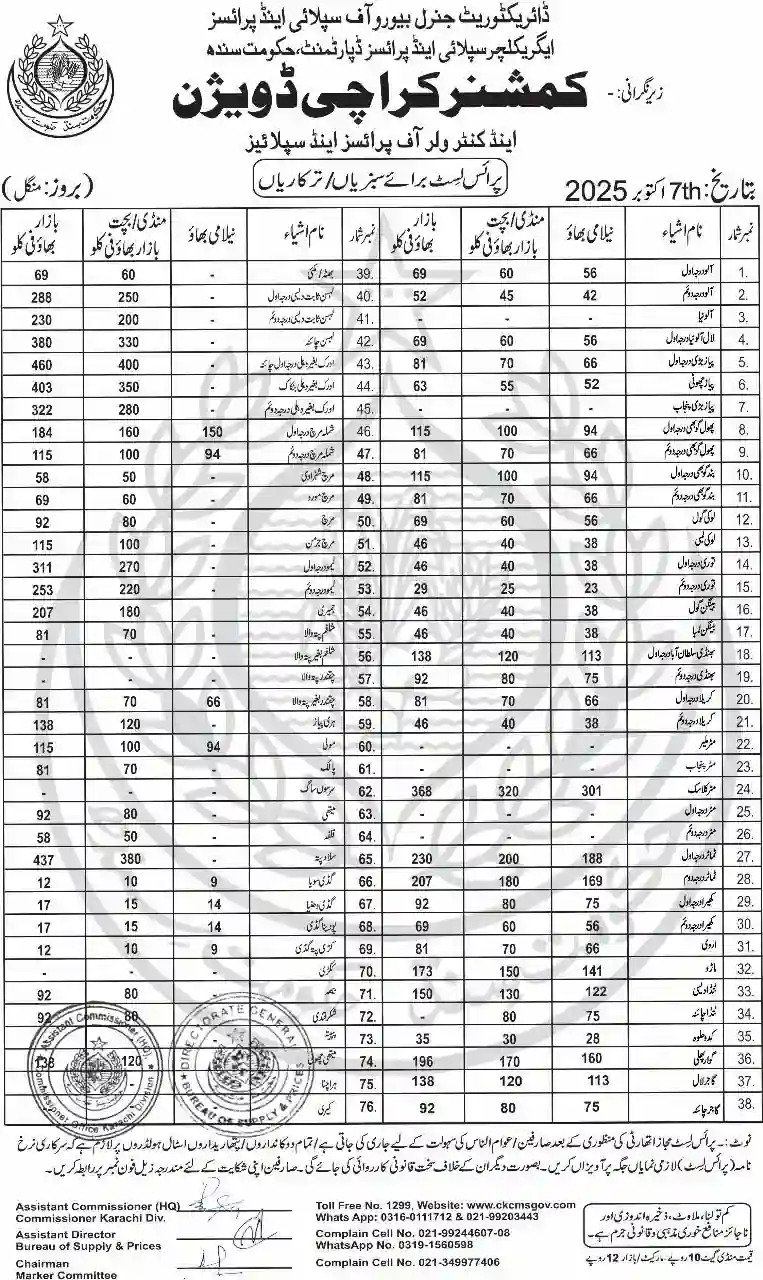 ڈائریکٹوریٹ جنرل بیورو آف سپلائی اینڈ پرائسز
ایگریکلچر سپلائی اینڈ پرائسز ڈپارٹمنٹ، حکومت سندھ
زیر نگرانی :- کمشنر کراچی ڈویژن
اینڈ کنٹرولر آف پرائسز اینڈ سپلائیز
پرائس لسٹ برائے سبزیاں/ترکاریاں
بتاریخ: 7th اکتوبر 2025 (بروز: منگل)
نمبر شمار نام اشیاء نیلامی بھاؤ منڈی/بچت بازار بھاؤ فی کلو بازار بھاؤ فی کلو نمبر شمار نام اشیاء نیلامی بھاؤ منڈی/بچت بازار بھاؤ فی کلو بازار بھاؤ فی کلو
1. آلو درجہ اول 56 60 69 39. بھٹہ/مکئی - 60 69
2. آلو درجہ دوئم 42 45 52 40. لہسن ثابت دیسی درجہ اول - 250 288
3. - - - 41. لہسن ثابت دیسی درجہ دوئم - 200 230
4. 56 60 69 42. لہسن چائنہ - 330 380
5. پیاز بڑی درجہ اول 66 70 81 43. ادرک بغیر دھلی درجہ اول چائنہ - 400 460
6. پیاز چھوٹی 52 55 63 44. ادرک بغیر دھلی بنکاک - 350 403
7. پیاز بڑی پنجاب - - - 45. ادرک بغیر دھلی درجہ دوئم - 280 322
8. پھول گوبھی درجہ اول 94 100 115 46. شملہ مرچ درجہ اول 150 160 184
9. پھول گوبھی درجہ دوئم 66 70 81 47. شملہ مرچ درجہ دوئم 94 100 115
10. بند گوبھی درجہ اول 94 100 115 48. مرچ شہزادی - 50 58
11. بند گوبھی درجہ دوئم 66 70 81 49. مرچ - 60 69
12. لوکی گول 56 60 69 50. مرچ - 80 92
13. لوکی لمبی 38 40 46 51. مرچ - 100 115
14. توری درجہ اول 38 40 46 52. لیمو درجہ اول - 270 311
15. توری درجہ دوئم 23 25 29 53. لیمو درجہ دوئم - 220 253
16. بینگن گول 38 40 46 54. - 180 207
17. بینگن لمبا 38 40 46 55. شلغم پتہ والا - 70 81
18. بھنڈی سلطان آباد درجہ اول 113 120 138 56. شلغم بغیر پتہ والا - - -
19. بھنڈی درجہ دوئم 75 80 92 57. چقندر پتہ والا - - -
20. کریلا درجہ اول 66 70 81 58. چقندر بغیر پتہ والا 66 70 81
21. کریلا درجہ دوئم 38 40 46 59. ہری پیاز - 120 138
22. مٹر ملیر - - - 60. مولی 94 100 115
23. مٹر پنجاب - - - 61. پالک - 70 81
24. مٹر کلاسک 301 320 368 62. سرسوں ساگ - - -
25. مٹر درجہ اول - - - 63. میتھی - 80 92
26. مٹر درجہ دوئم - - - 64. - 50 58
27. ٹماٹر درجہ اول 188 200 230 65. سلاد پتہ - 380 437
28. ٹماٹر درجہ دوم 169 180 207 66. گڈی سویا 9 10 12
29. کھیرا درجہ اول 75 80 92 67. گڈی دھنیا 14 15 17
30. کھیرا درجہ دوئم 56 60 69 68. پودینا گڈی 14 15 17
31. اروی 66 70 81 69. کڑی پتہ گڈی 9 10 12
32. 141 150 173 70. ککڑی - - -
33. ٹنڈا دیسی 122 130 150 71. - 80 92
34. ٹنڈا چائنہ 75 80 - 72. شکرقندی - 80 92
35. کدو حلوہ 28 30 35 73. - - -
36. گوار پھلی 160 170 196 74. میتھی چھوٹی 120 138
37. گاجر لال 113 120 138 75. ہرا چنا - -
38. گاجر چائنہ 75 80 92 76. کیری - -
نوٹ :- پرائس لسٹ مجاز اتھارٹی کی منظوری کے بعد صارفین/عوام الناس کی سہولت کے لیے جاری کی جاتی ہے/تمام دوکانداروں/پتھاریداروں/اسٹال ہولڈروں پر لازم ہے کہ سرکاری نرخ
نامہ (پرائس لسٹ) لازمی نمایاں جگہ پر آویزاں کریں۔ بصورت دیگر ان کے خلاف سخت قانونی کارروائی کی جائے گی۔ صارفین اپنی شکایت کے لئے مندرجہ زیل فون نمبر پر رابطہ کریں۔
Assistant Commissioner (HQ)
Commissioner Karachi Div.
Assistant Director
Bureau of Supply & Prices
Chairman
Marker Committee
Toll Free No. 1299, Website: www.ckcmsgov.com
Whats App: 0316-0111712 & 021-99203443
Complain Cell No. 021-99244607-08
WhatsApp No. 0319-1560598
Complain Cell No. 021-349977406
کم تولنا، ملاوٹ، ذخیرہ اندوزی اور
ناجائز منافع خوری مذہبی و قانونی جرم ہے۔
قیمت منڈی گیٹ 10 روپے - مارکیٹ/بازار 12 روپے
Assistant Commissioner (HQ)
Commissioner Office Karachi Division
DIRECTORATE GENERAL
BUREAU OF SUPPLY & PRICES